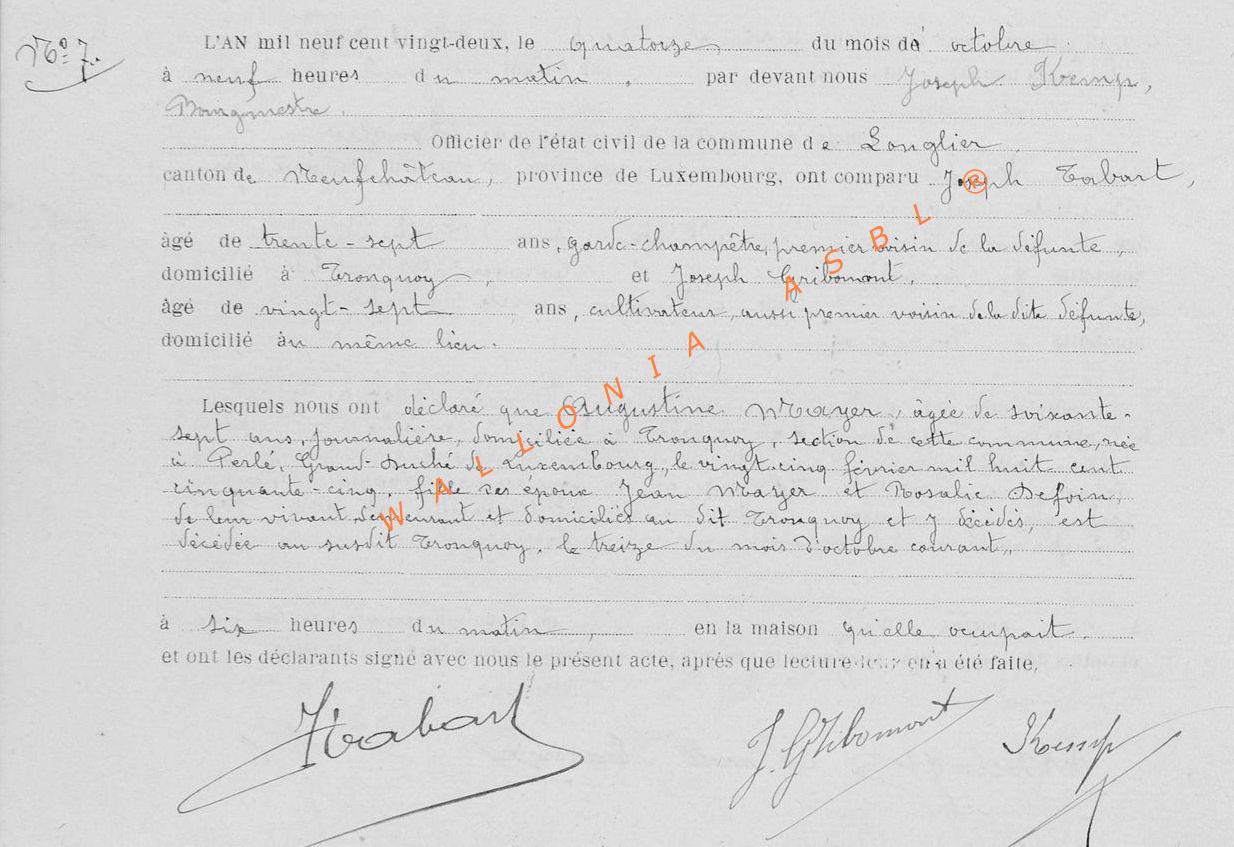 No: 7.
L'AN mil neuf cent vingt-deux, le quatorze du mois de octobre
à neuf heures du matin, par devant nous Joseph Kemp,
Bourgmestre.
Officier de l'état civil de la commune de Longlier,
canton de Neufchâteau, province de Luxembourg, ont comparu Joseph Tabart,
âgé de trente-sept ans, garde-champêtre, premier voisin de la défunte,
domicilié à Tronquoy, et Joseph Gribomont,
âgé de vingt-sept ans, cultivateur, aussi premier voisin de la dite défunte,
domicilié au même lieu.
Lesquels nous ont déclaré que Augustine Mayer, âgée de soixante-
sept ans, journalière, domiciliée à Tronquoy, section de cette commune, née
à Perlé, Grand-Duché de Luxembourg, le vingt-cinq février mil huit cent
cinquante-cinq, fille des époux Jean Mayer et Rosalie Defoin,
de leur vivant demeurant et domiciliés au dit Tronquoy et y décédés, est
décédée au susdit Tronquoy, le treize du mois d'octobre courant,
à six heures du matin, en la maison qu'elle occupait.
et ont les déclarants signé avec nous le présent acte, après que lecture leur en a été faite,
J. Gribomont Kemp
WALLONIA ASBL ©